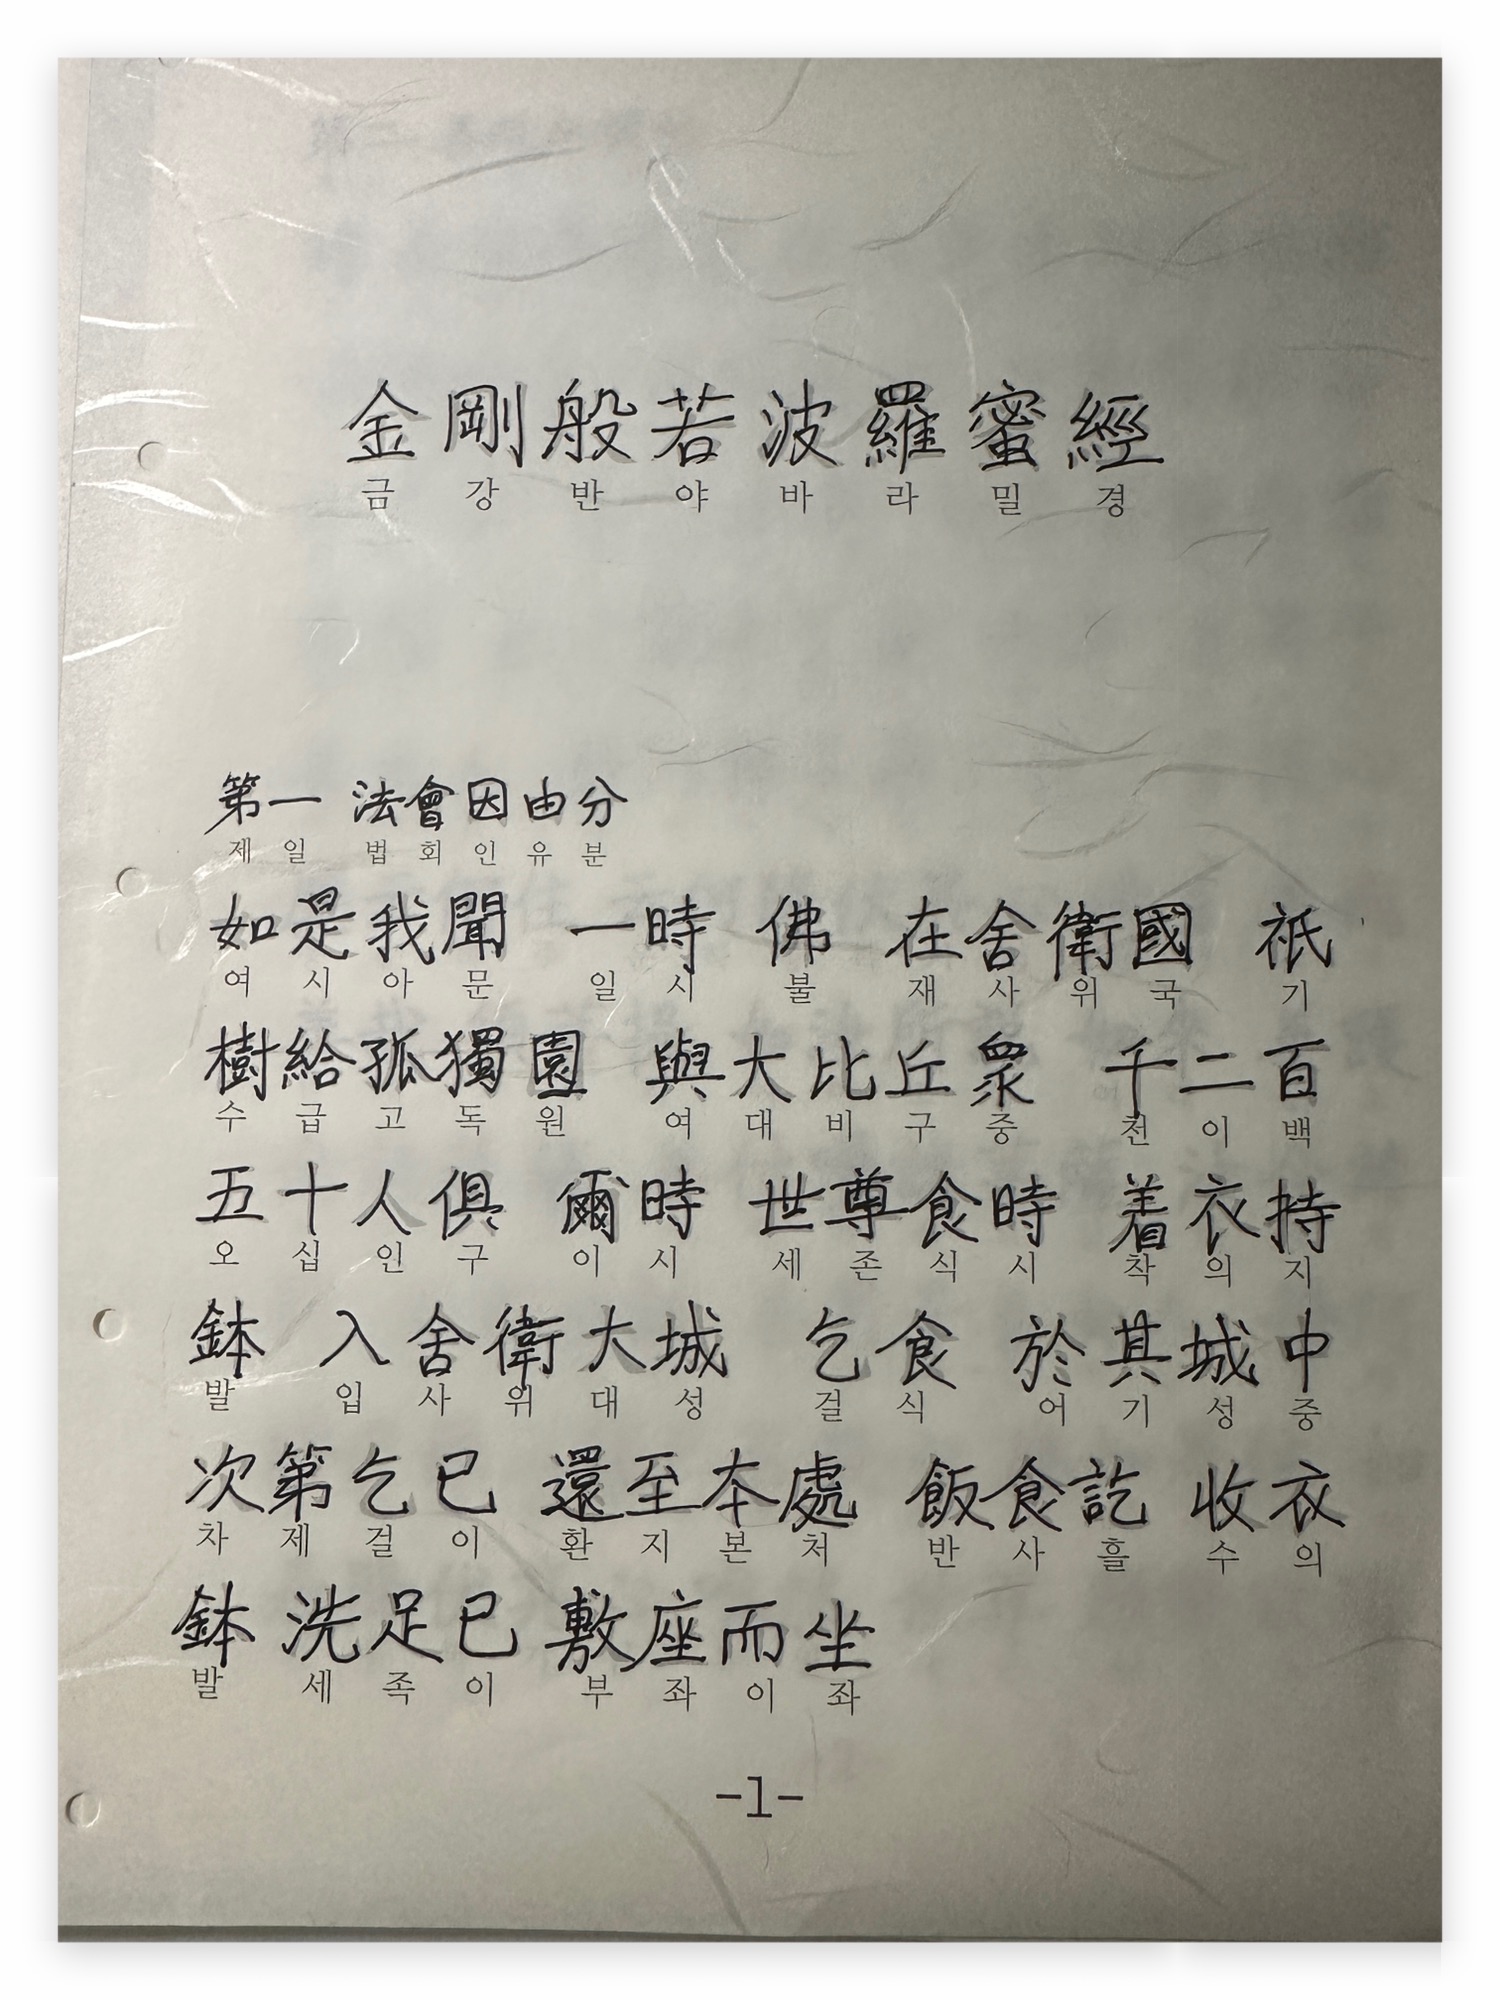 金剛般若波羅蜜經
금 강 반 야 바 라 밀 경
第一 法會因由分
제 일 법 회 인 유 분
如是我聞 一時 佛 在舍衛國 祇
여 시 아 문 일 시 불 재 사 위 국 기
樹給孤獨園 與大比丘衆 千二百
수 급 고 독 원 여 대 비 구 중 천 이 백
五十人俱 爾時 世尊食時 着衣持
오 십 인 구 이 시 세 존 식 시 착 의 지
鉢 入舍衛大城 乞食 於其城中
발 입 사 위 대 성 걸 식 어 기 성 중
次第乞已 還至本處 飯食訖 收衣
차 제 걸 이 환 지 본 처 반 사 흘 수 의
鉢 洗足已 敷座而坐
발 세 족 이 부 좌 이 좌
-1-